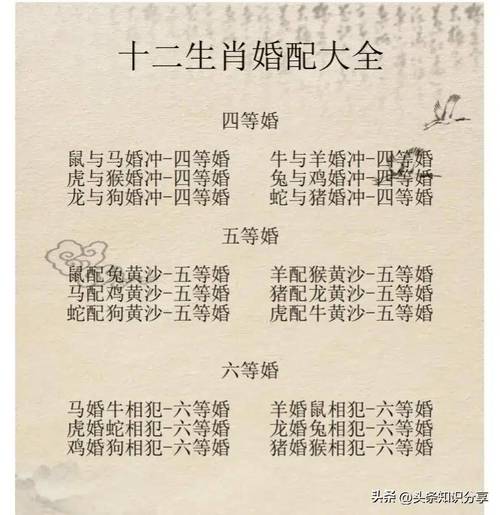 十二生肖婚配大全
四等婚
鼠与马婚冲-四等婚 牛与羊婚冲-四等婚
虎与猴婚冲-四等婚 兔与鸡婚冲-四等婚
龙与狗婚冲-四等婚 蛇与猪婚冲-四等婚
五等婚
鼠配兔黄沙-五等婚 羊配猴黄沙-五等婚
马配鸡黄沙-五等婚 猪配龙黄沙-五等婚
蛇配狗黄沙-五等婚 虎配牛黄沙-五等婚
六等婚
马婚牛相犯-六等婚 羊婚鼠相犯-六等婚
虎婚蛇相犯-六等婚 龙婚兔相犯-六等婚
鸡婚狗相犯-六等婚 猪婚猴相犯-六等婚
头条 @头条知识分享